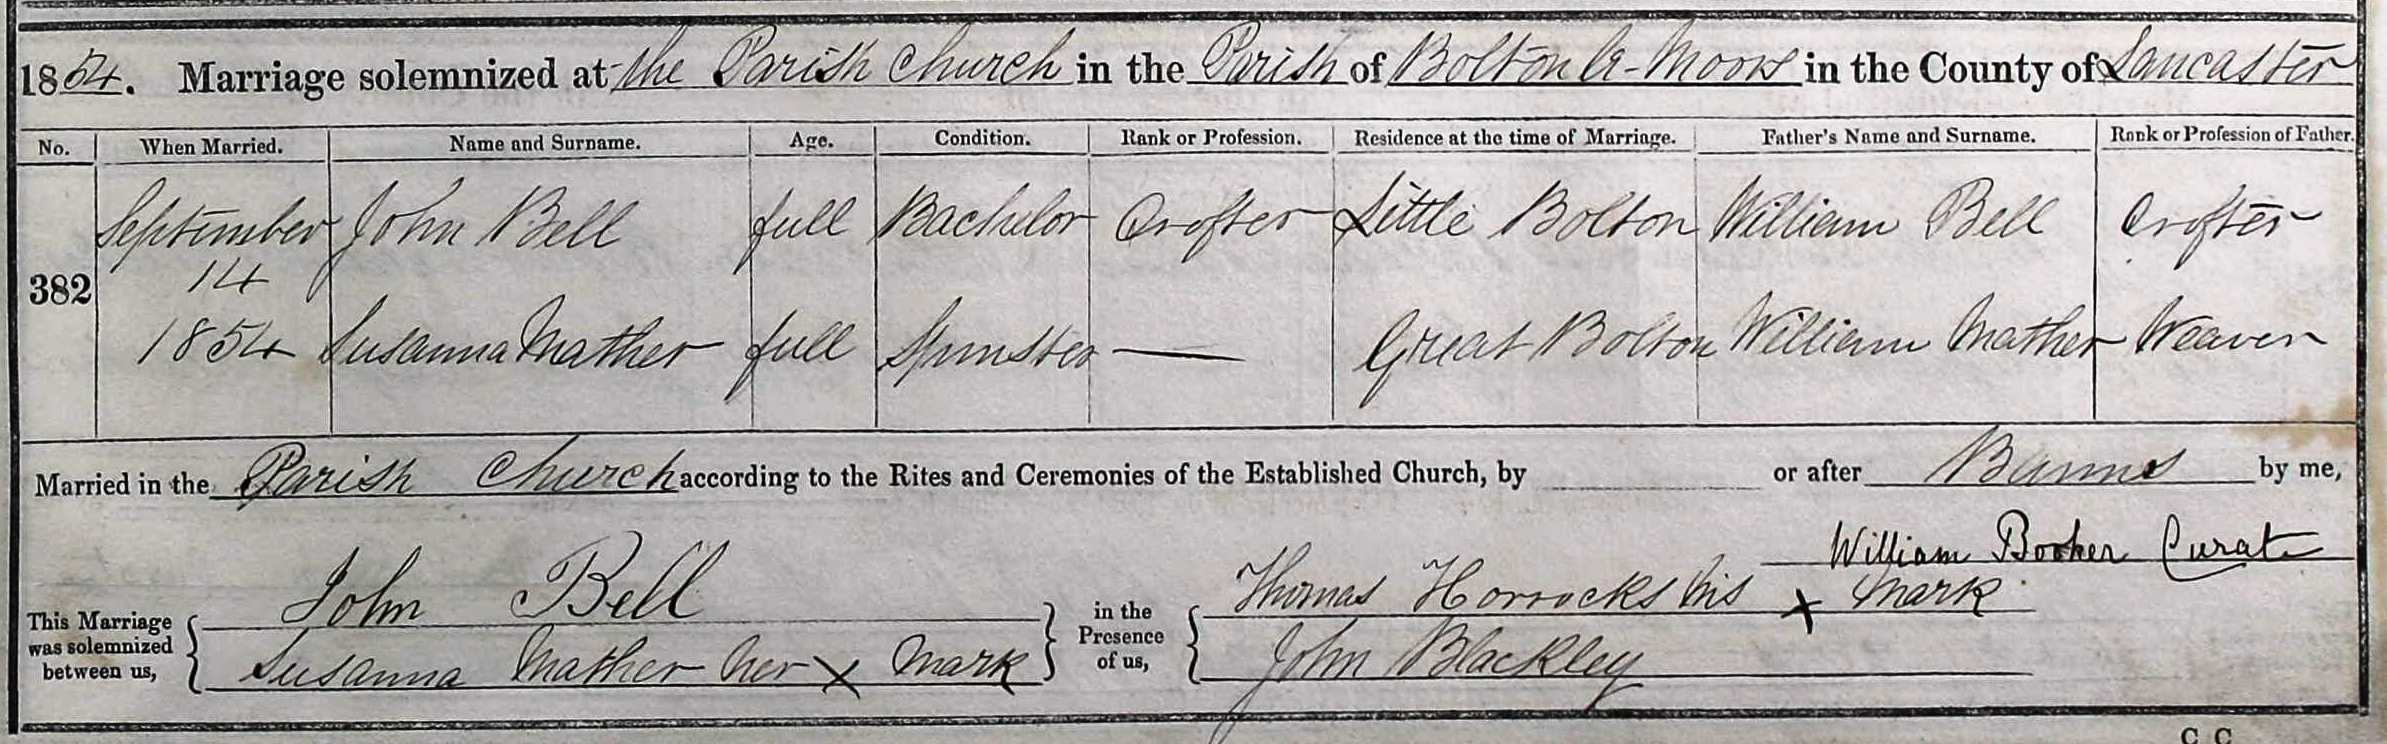 1854. Marriage solemnized at the Parish Church in the Parish of Bolton le-Moors in the County of Lancaster
No. When Married. Name and Surname. Age. Condition. Rank or Profession. Residence at the time of Marriage. Father's Name and Surname. Rank or Profession of Father.
September John Bell full Bachelor Crofter Little Bolton William Bell Crofter
382 14
1854 Susanna Mather full Spinster — Great Bolton William Mather Weaver
Married in the Parish Church according to the Rites and Ceremonies of the Established Church, by or after Banns by me,
William Booker Curate
This Marriage was solemnized between us, John Bell in the Presence of us, Thomas Horrocks his X mark
Susanna Mather her X mark John Blackley
C C